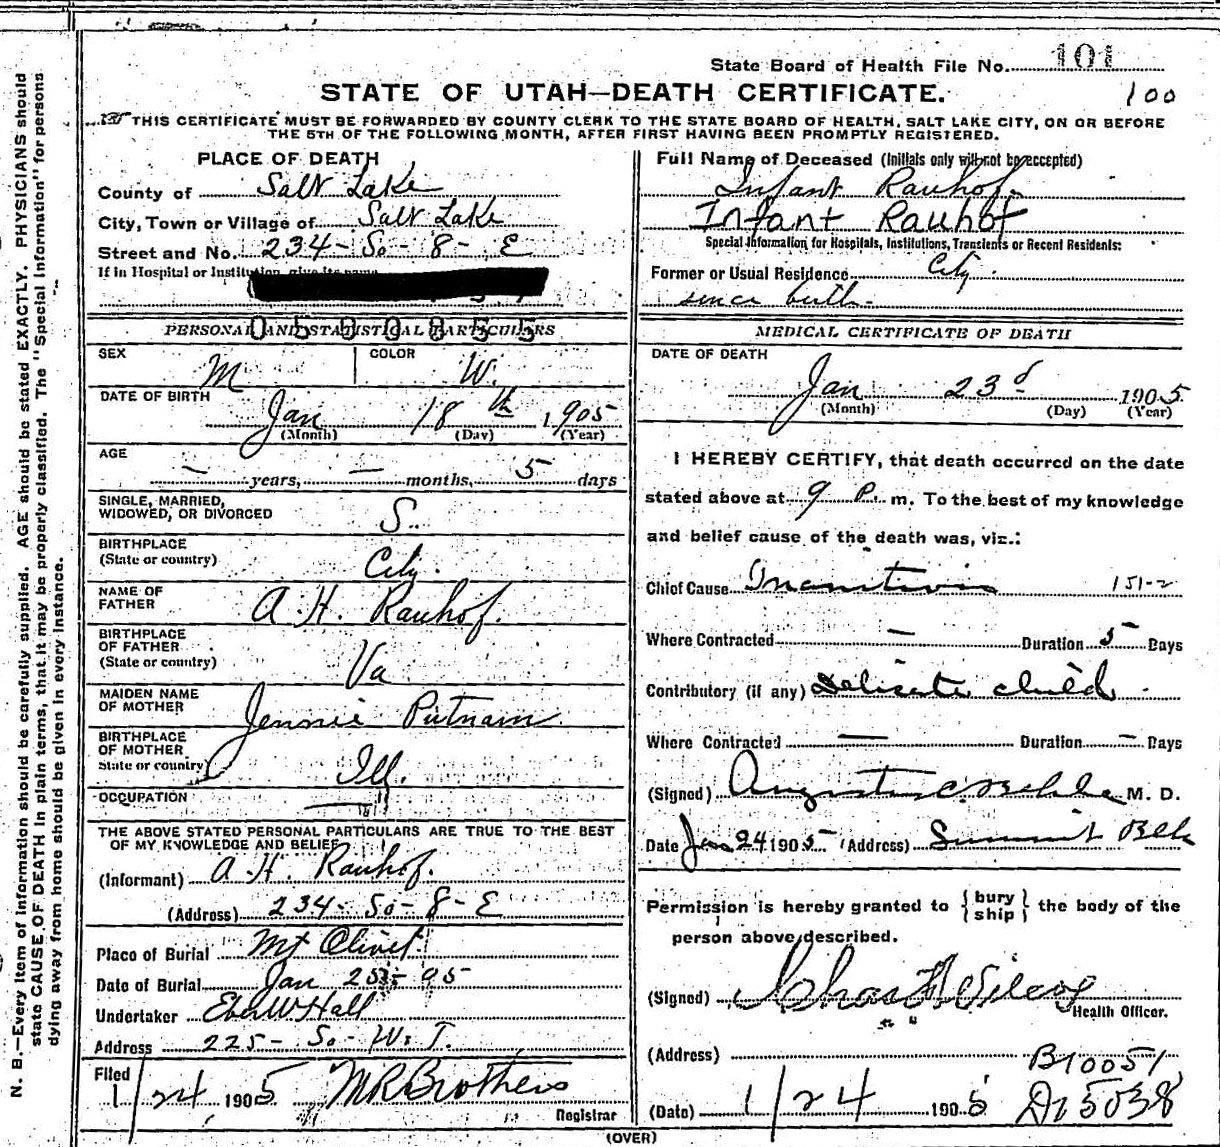 State Board of Health File No. 101
STATE OF UTAH—DEATH CERTIFICATE.
100
THIS CERTIFICATE MUST BE FORWARDED BY COUNTY CLERK TO THE STATE BOARD OF HEALTH, SALT LAKE CITY, ON OR BEFORE
THE 5TH OF THE FOLLOWING MONTH, AFTER FIRST HAVING BEEN PROMPTLY REGISTERED.
N. B.—Every item of information should be carefully supplied. AGE should be stated EXACTLY. PHYSICIANS should
state CAUSE OF DEATH in plain terms, that it may be properly classified. The "Special Information" for persons
dying away from home should be given in every instance.
PLACE OF DEATH
County of Salt Lake
City, Town or Village of Salt Lake
Street and No. 234- So- 8- E
If in Hospital or Institution, give its name
PERSONAL AND STATISTICAL PARTICULARS
0500855
SEX M
COLOR W.
DATE OF BIRTH
Jan 18th 1905
(Month) (Day) (Year)
AGE
— years, — months, 5 days
SINGLE, MARRIED,
WIDOWED, OR DIVORCED S.
BIRTHPLACE
(State or country) City.
NAME OF
FATHER A. H. Rauhof.
BIRTHPLACE
OF FATHER
(State or country) Va
MAIDEN NAME
OF MOTHER Jennie Putnam
BIRTHPLACE
OF MOTHER
State or country) Ill.
OCCUPATION —
THE ABOVE STATED PERSONAL PARTICULARS ARE TRUE TO THE BEST
OF MY KNOWLEDGE AND BELIEF
(Informant) A. H. Rauhof.
(Address) 234- So- 8- E
Place of Burial Mt Olivet.
Date of Burial Jan 25-
Undertaker Eber W Hall
Address 225- So- W. T.
Filed
1/24 1905 M R Brothers
Registrar
Full Name of Deceased (Initials only will not be accepted)
Infant Rauhof.
Infant Rauhof
Special Information for Hospitals, Institutions, Transients or Recent Residents:
Former or Usual Residence City.
since birth.
MEDICAL CERTIFICATE OF DEATH
DATE OF DEATH
Jan 23d 1905
(Month) (Day) (Year)
I HEREBY CERTIFY, that death occurred on the date
stated above at 9 P. m. To the best of my knowledge
and belief cause of the death was, viz.:
Chief Cause Inanition 151-2
Where Contracted — Duration 5 Days
Contributory (if any) Delicate child.
Where Contracted — Duration — Days
(Signed) Augustus C. Behle M. D.
Date Jan 24 1905 (Address) Summit Blk
Permission is hereby granted to { bury ship } the body of the
person above described.
(Signed)
Health Officer.
(Address)
B10051
(Date) 1/24 1905 D15038
(OVER)